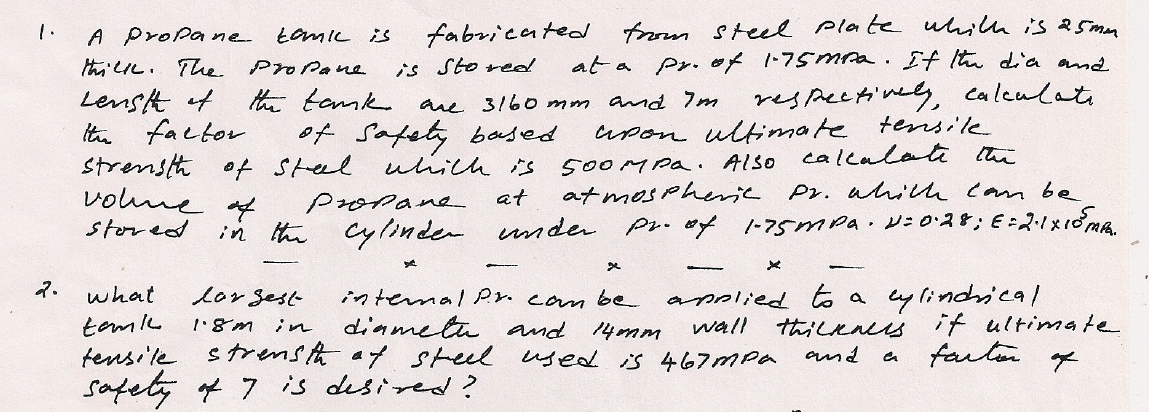 1. A Propane tank is fabricated from steel plate which is 25mm
thick. The Propane is stored at a Pr. of 1.75MPa. If the dia and
Length of the tank are 3160 mm and 7m respectively, calculate
the factor of Safety based upon ultimate tensile
strength of Steel which is 500MPa. Also calculate the
volume of Propane at atmospheric Pr. which can be
stored in the cylinder under Pr. of 1.75MPa. ν=0.28; E=2.1×10⁵MPa.
— × — × — × —
2. what largest internal Pr. can be applied to a cylindrical
tank 1.8m in diameter and 14mm wall thickness if ultimate
tensile strength of steel used is 467MPa and a factor of
safety of 7 is desired?